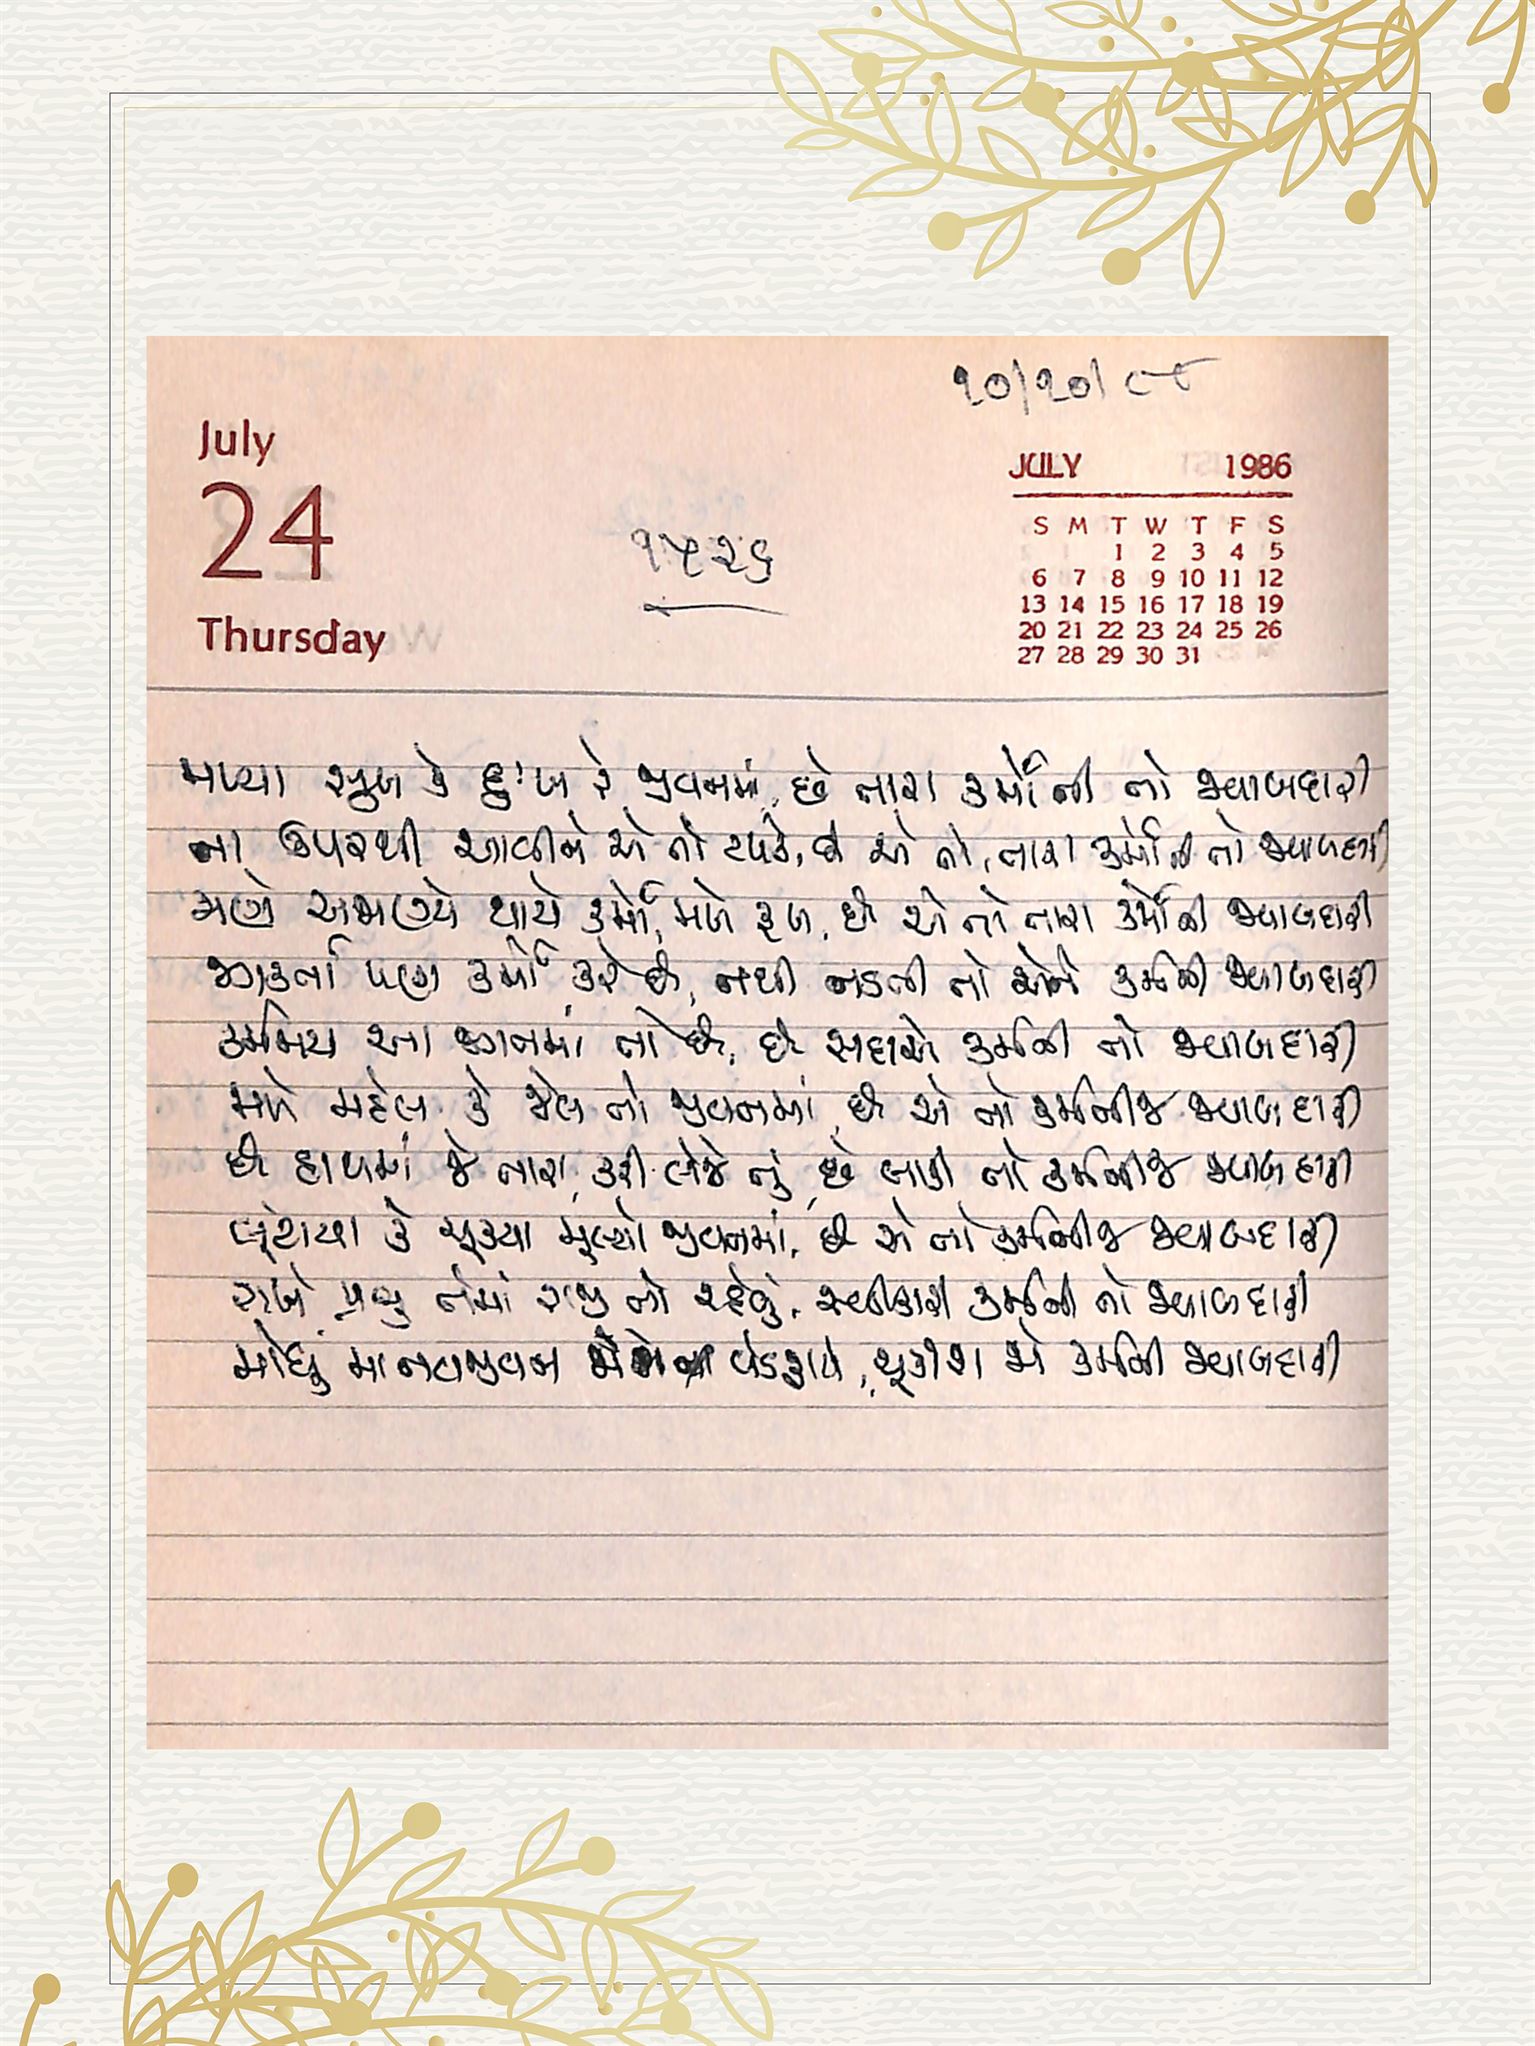 ૧૦/૧૦/૮૮
July
24
Thursday
૧૫૨૬
JULY 1986
S M T W T F S
1 2 3 4 5
6 7 8 9 10 11 12
13 14 15 16 17 18 19
20 21 22 23 24 25 26
27 28 29 30 31
મળ્યા સુખ કે દુઃખ રે જીવનમાં, છે તારા કર્મોની તો જવાબદારી
ના ઉપરથી આવીને એ તો ટપકે, છે એ તો, તારા કર્મોની તો જવાબદારી
જાણે અજાણ્યે થાયે કર્મો, મળે ફળ, છે એ તો તારા કર્મોની જવાબદારી
જાગૃતાં પણ કર્મો કરે છે, નથી નડતી તો એને કર્મની જવાબદારી
કર્મમય આ જગમાં તો છે, છે સદાએ કર્મની તો જવાબદારી
મળે મહેલ કે જેલ તો જીવનમાં, છે એ તો કર્મનીજ જવાબદારી
છે હાથમાં જે તારા, કરી લેજે તું, છે બાકી તો કર્મનીજ જવાબદારી
લૂંટાયા કે ચૂક્યા મૂલ્યો જીવનમાં, છે એ તો કર્મનીજ જવાબદારી
રાખે પ્રભુ તેમાં રાજી તો રહેવું, સ્વીકારી કર્મની તો જવાબદારી
મોંઘું માનવજીવન વેડફાયે, ચૂકીશ જો કર્મની જવાબદારી